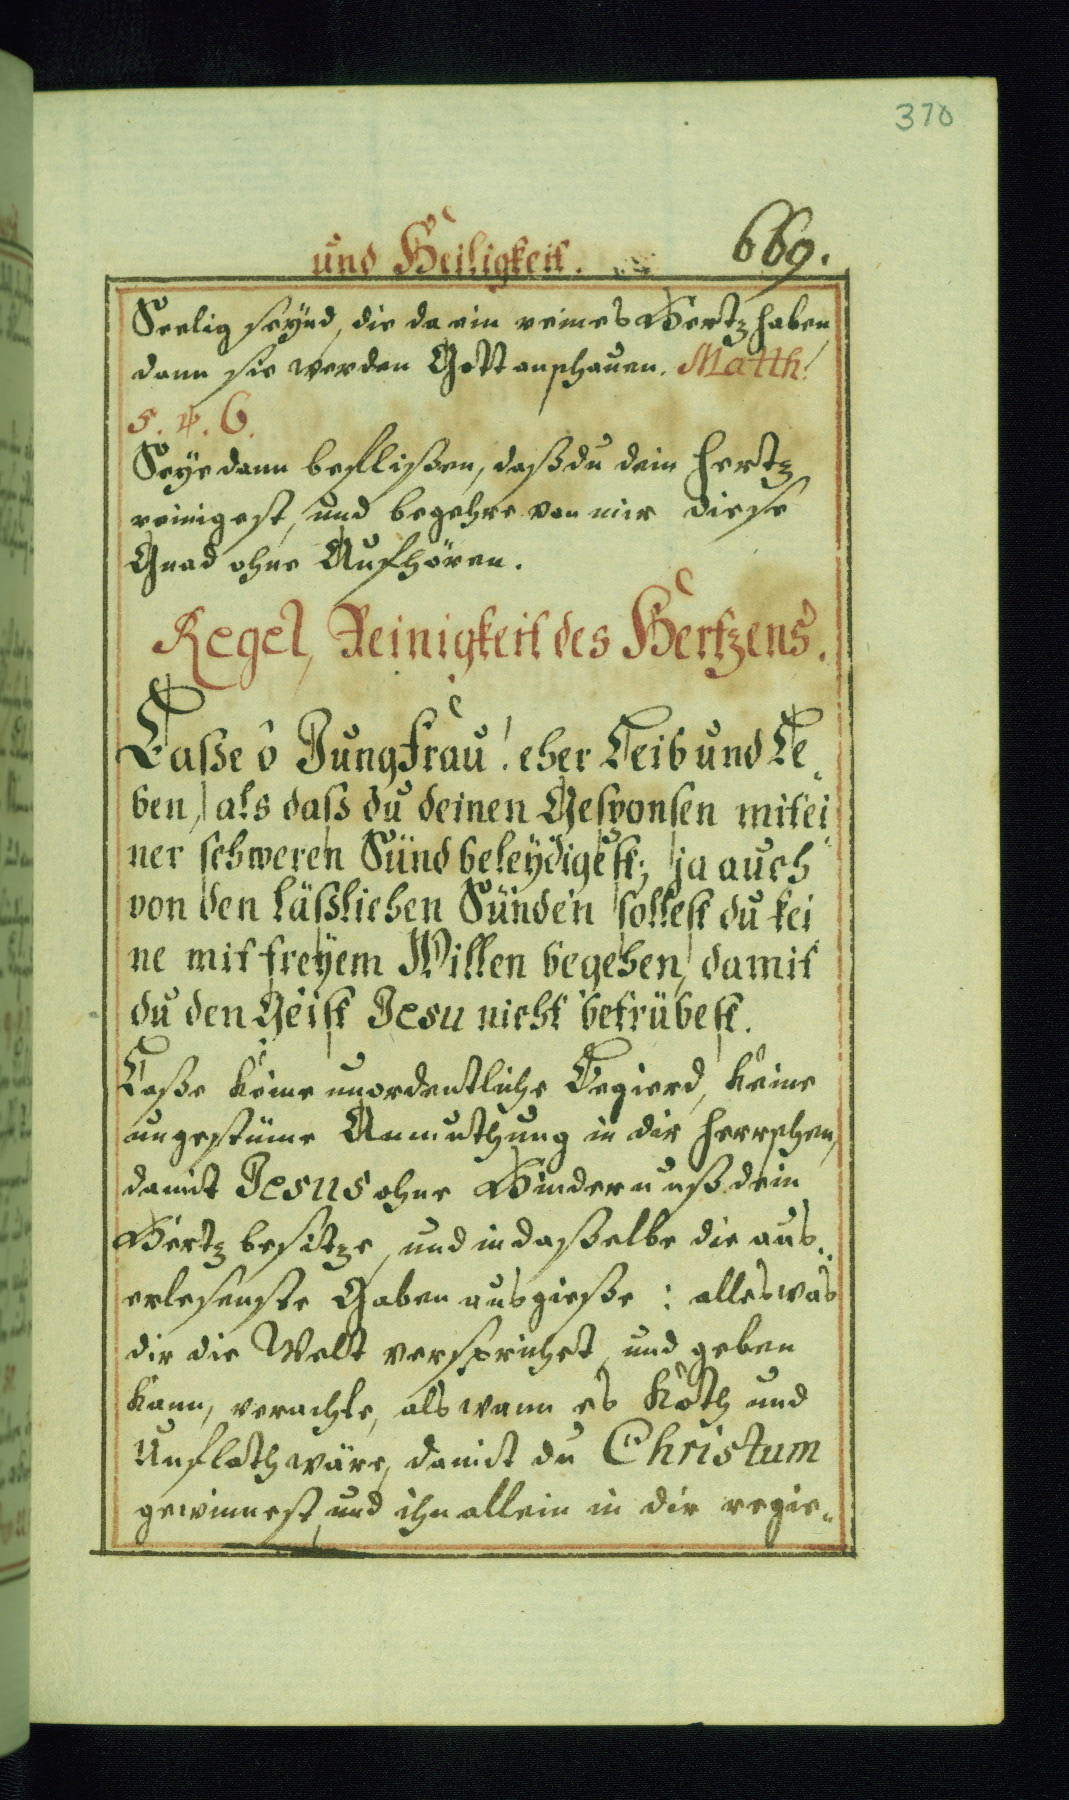 370
und Heiligkeit. 669.
Seelig seynd, die da ein reines Hertz haben,
dann sie werden Gott anschauen. Matth:
5. v. 6.
Seye dann beflißen, daß du dein Hertz
reinigest, und begehre von mir diese
Gnad ohne Aufhören.
Regel, Reinigkeit des Hertzens.
Laße ô Jungfrau! eher Leib und Le„
ben, als daß du deinen Gesponsen mit ei„
ner schweren Sünd beleÿdigest; ja auch
von den läßlichen Sünden sollest du kei„
ne mit freÿem Willen begehen, damit
du den Geist Jesu nicht betrübest.
Laße keine unordentliche Begierd, keine
ungestüme Anmuthung in dir herrschen,
damit Jesus ohne Hindernuß dein
Hertz besitze, und in daßelbe die aus„
erlesenste Gaben ausgieße: alles was
dir die Welt verspricht, und geben
kann, verachte, als wann es Koth und
Unflath wäre, damit du Christum
gewinnest, und ihn allein in dir regie„